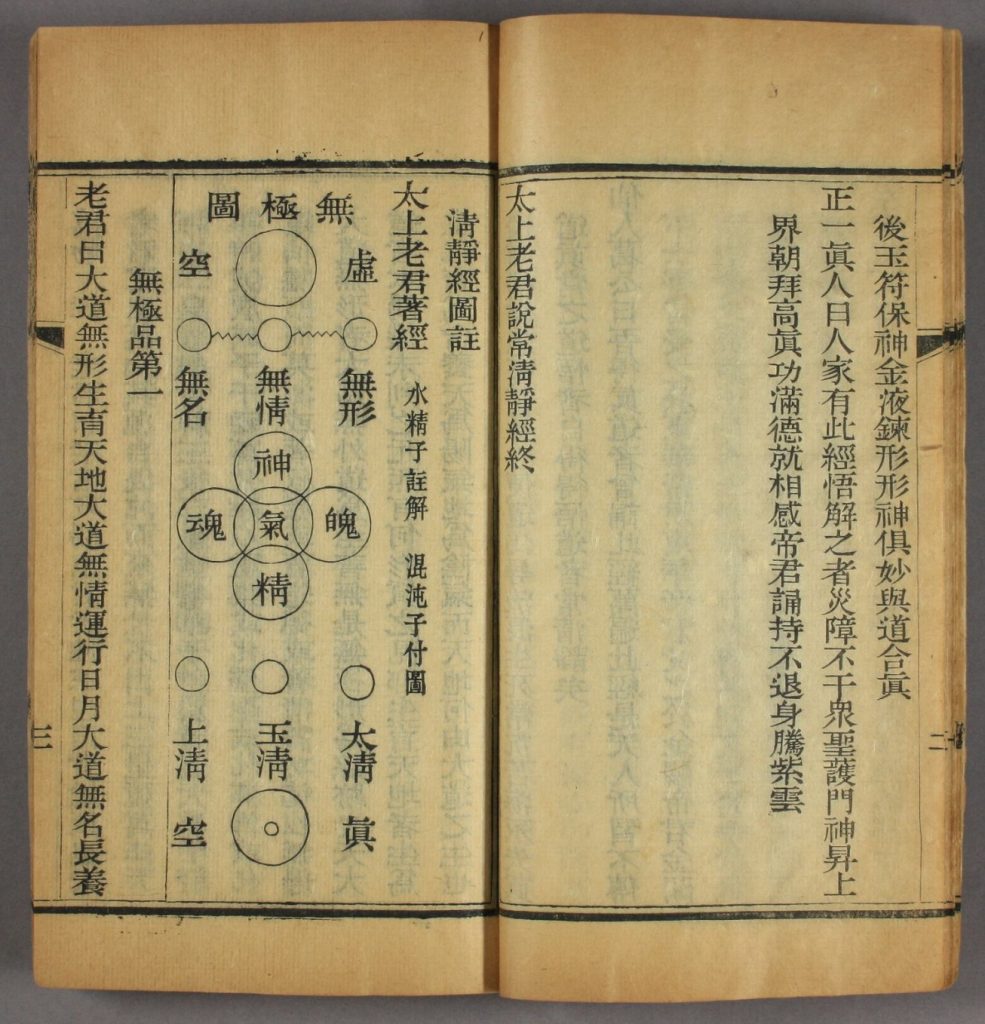 後玉符保神金液鍊形形神俱妙與道合眞
正一眞人曰人家有此經悟解之者災障不干衆聖護門神昇上
界朝拜高眞功滿德就相感帝君誦持不退身騰紫雲
太上老君說常淸靜經終
二
淸靜經圖註
太上老君著經 水精子註解 混沌子付圖
無極圖
虛 空
無形 無情 無名
神
魄 氣 魂
精
太淸 玉淸 上淸
眞 空
無極品第一
老君曰大道無形生育天地大道無情運行日月大道無名長養
三